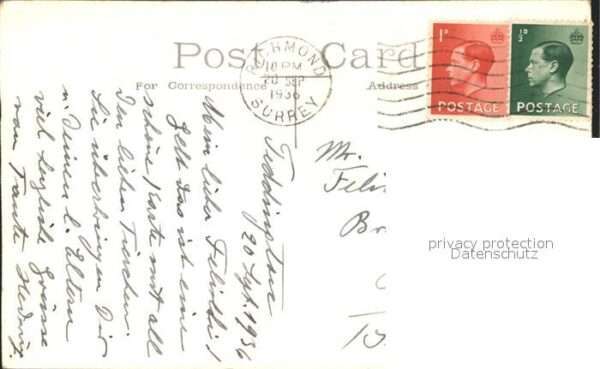 Post Card
For Correspondence
Address
RICHMOND
10 PM
20 SEP
1936
SURREY
1D
POSTAGE
½D
POSTAGE
Teddington
20 Sept. 1936
Mein lieber
Gelt das ist eine
schöne Karte mit all
den lieben Tierchen.
Sie überbringen Dir
u. Deinen l. Eltern
viel herzliche Grüsse
von Tante Hedwig.
Mr.
privacy protection
Datenschutz